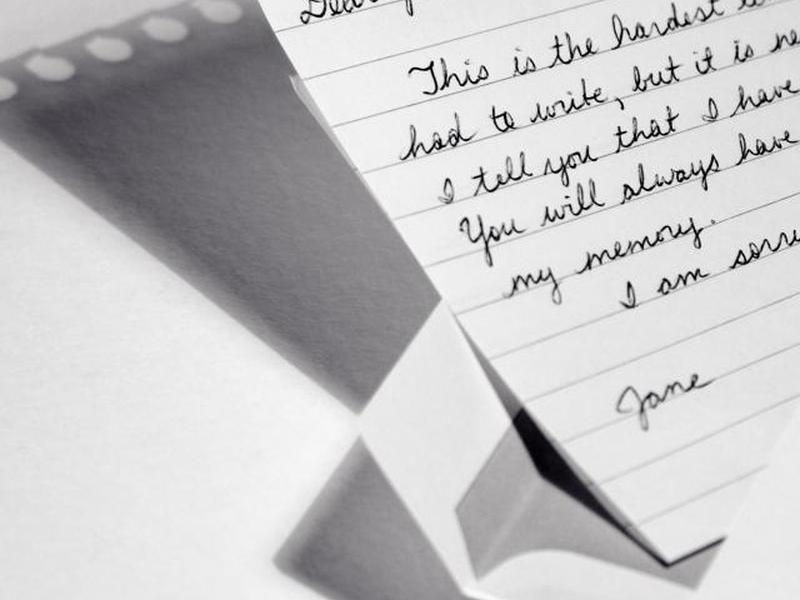 Dear
This is the hardest
had to write, but it is
I tell you that I have
You will always have
my memory.
I am
Jane